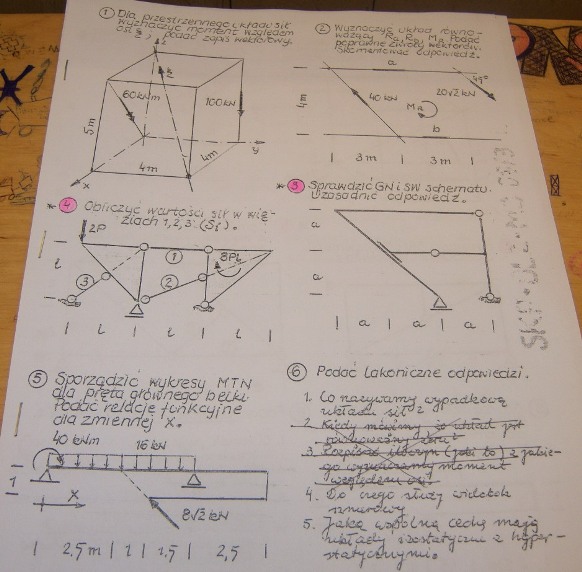 ① Dla przestrzennego układu sił
wyznaczyć moment względem
podać zapis wektorowy.
z
60kNm
100kN
5m
y
4m
4m
x
② Wyznaczyć układ równo-
ważący Ra, Rb, Ma. Podać
poprawne zwroty wektorów.
Skomentować odpowiedź.
a
45°
20√2 kN
4m
40 kN
Ma
b
3m
3m
* ③ Sprawdzić GN i SW schematu.
Uzasadnić odpowiedź.
a
a
a
a
a
* ④ Obliczyć wartości sił w wię-
ziach 1,2,3 (Si).
2P
8Pl
l
①
②
③
l
l
l
⑤ Sporządzić wykresy MTN
dla pręta głównego belki.
Podać relacje funkcyjne
dla zmiennej X.
40 kNm
16 kN
1
X
8√2 kN
2,5m
1
1,5
2,5
⑥ Podać lakoniczne odpowiedzi.
1. Co nazywamy wypadkową
układu sił?
2. Kiedy mówimy, że układ jest
równoważny zeru?
4. Do czego służy wielobok
sznurowy
5. Jaką wspólną cechę mają
układy izostatyczne z hyper-
statycznymi.